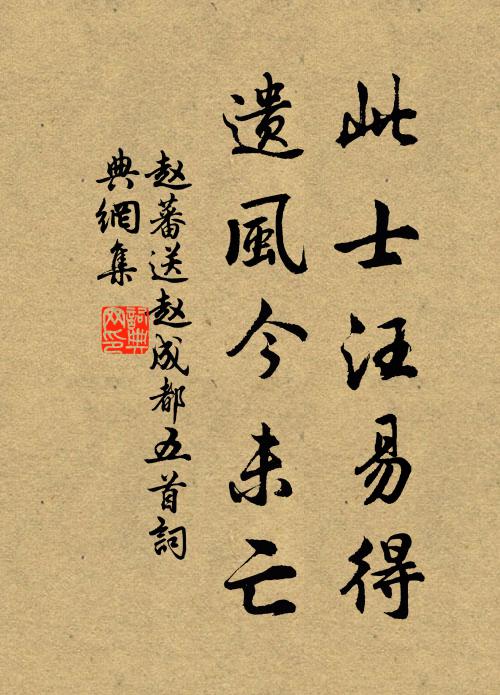 此士汪易得
遗風今未亡
赵蕃送赵成都五首詞
典網集
詞典
网印